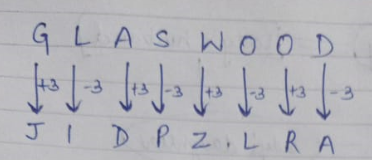 G L A S W O O D
+3 -3 +3 -3 +3 -3 +3 -3
J I D P Z . L R A